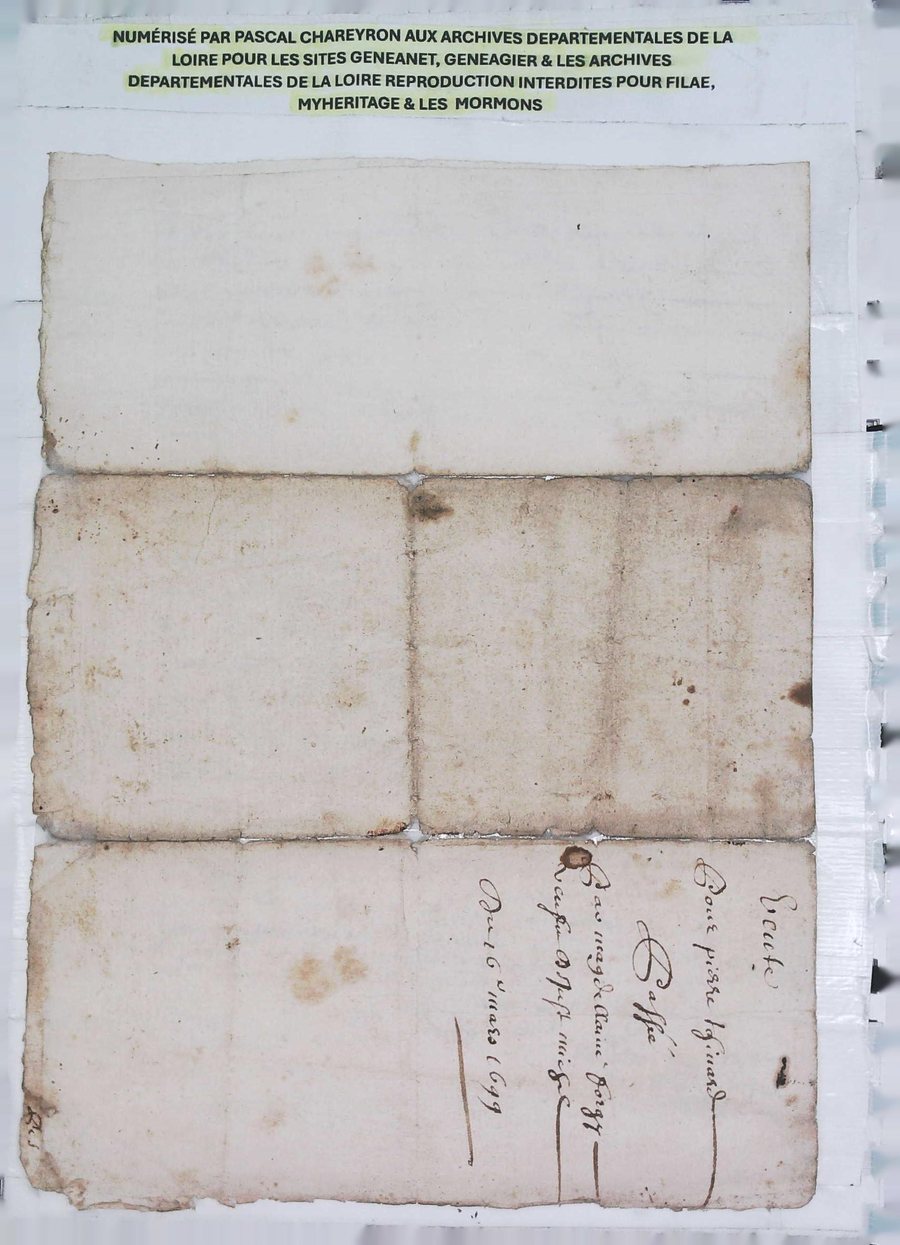 NUMÉRISÉ PAR PASCAL CHAREYRON AUX ARCHIVES DEPARTEMENTALES DE LA
LOIRE POUR LES SITES GENEANET, GENEAGIER & LES ARCHIVES
DEPARTEMENTALES DE LA LOIRE REPRODUCTION INTERDITES POUR FILAE,
MYHERITAGE & LES MORMONS
Pour pierre
Passé
Par magdelaine
Du 16e mars 1699